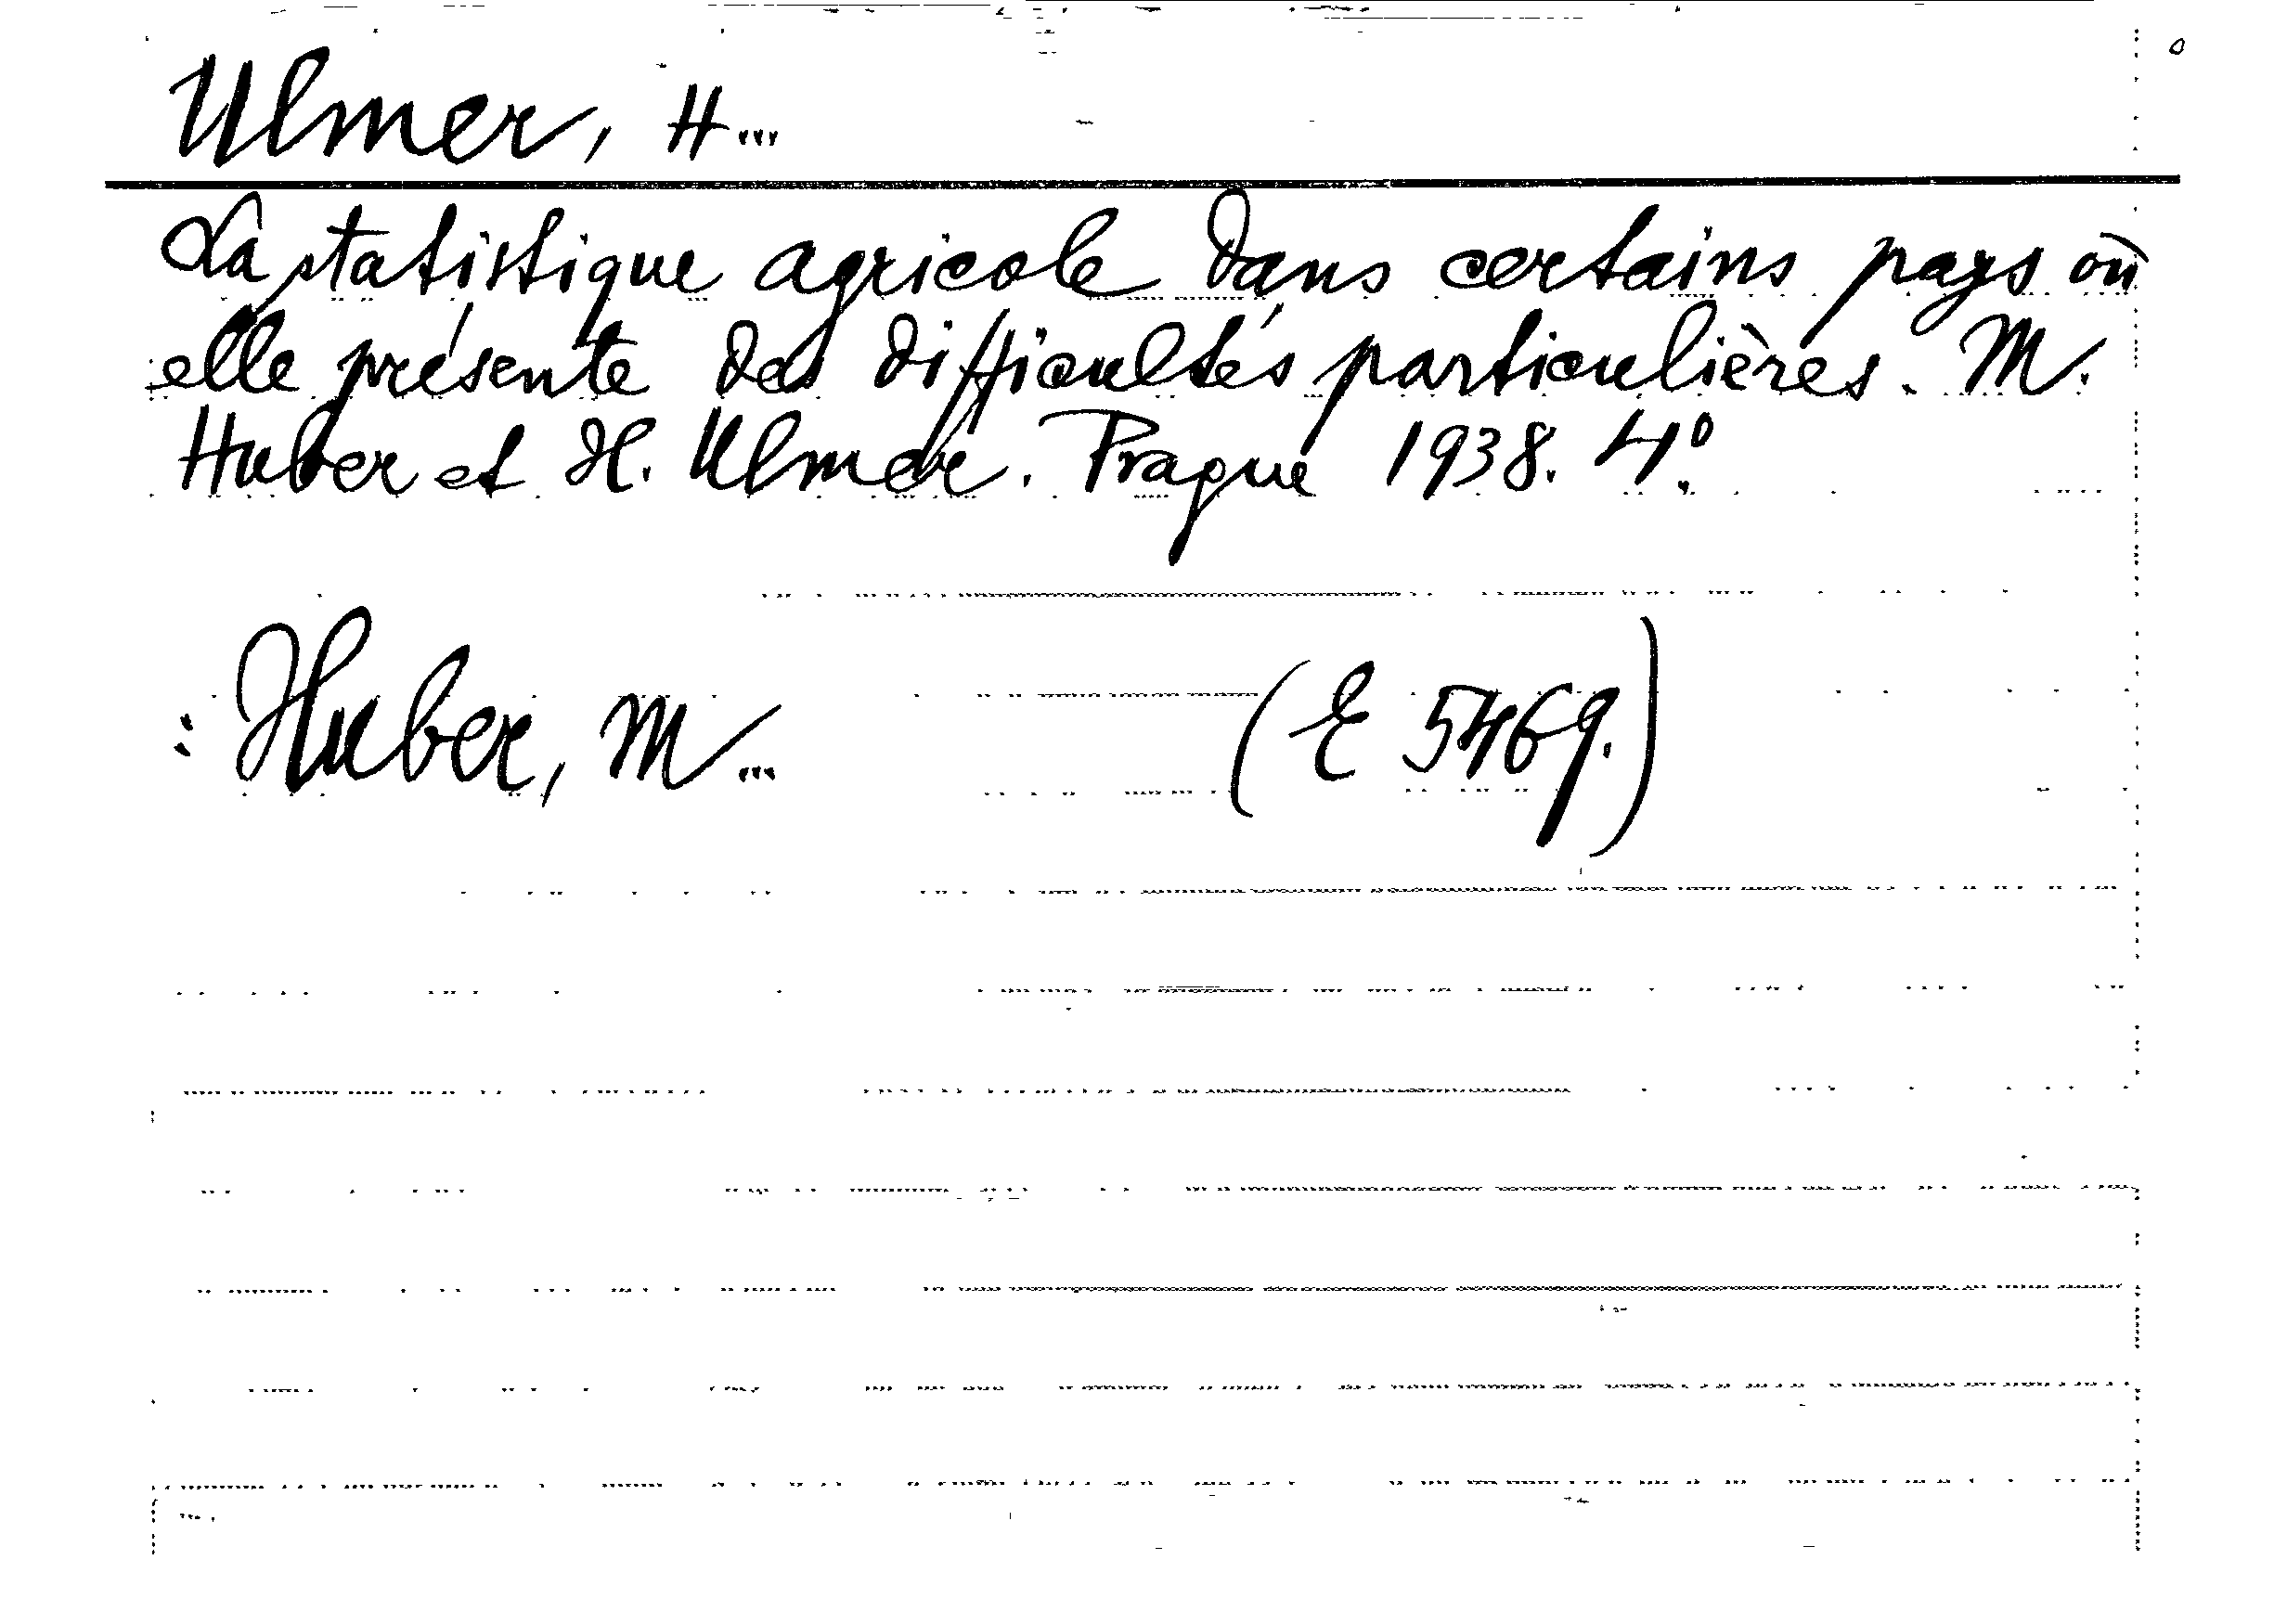 Ulmer, H...
La statistique agricole dans certains pays où
elle présente des difficultés particulières. M.
Huber et H. Ulmer. Prague 1938. 4°.
: Huber, M... (E 5469.)